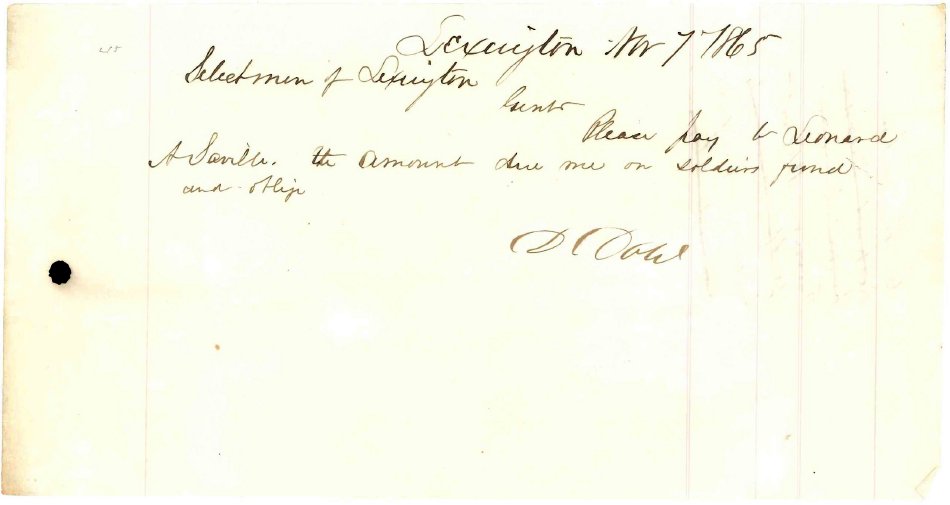 Lexington Nov 7 1865
Selectmen of Lexington
Gents
Please pay to Leonard
A Saville. the amount due me on soldiers fund
and oblige
D